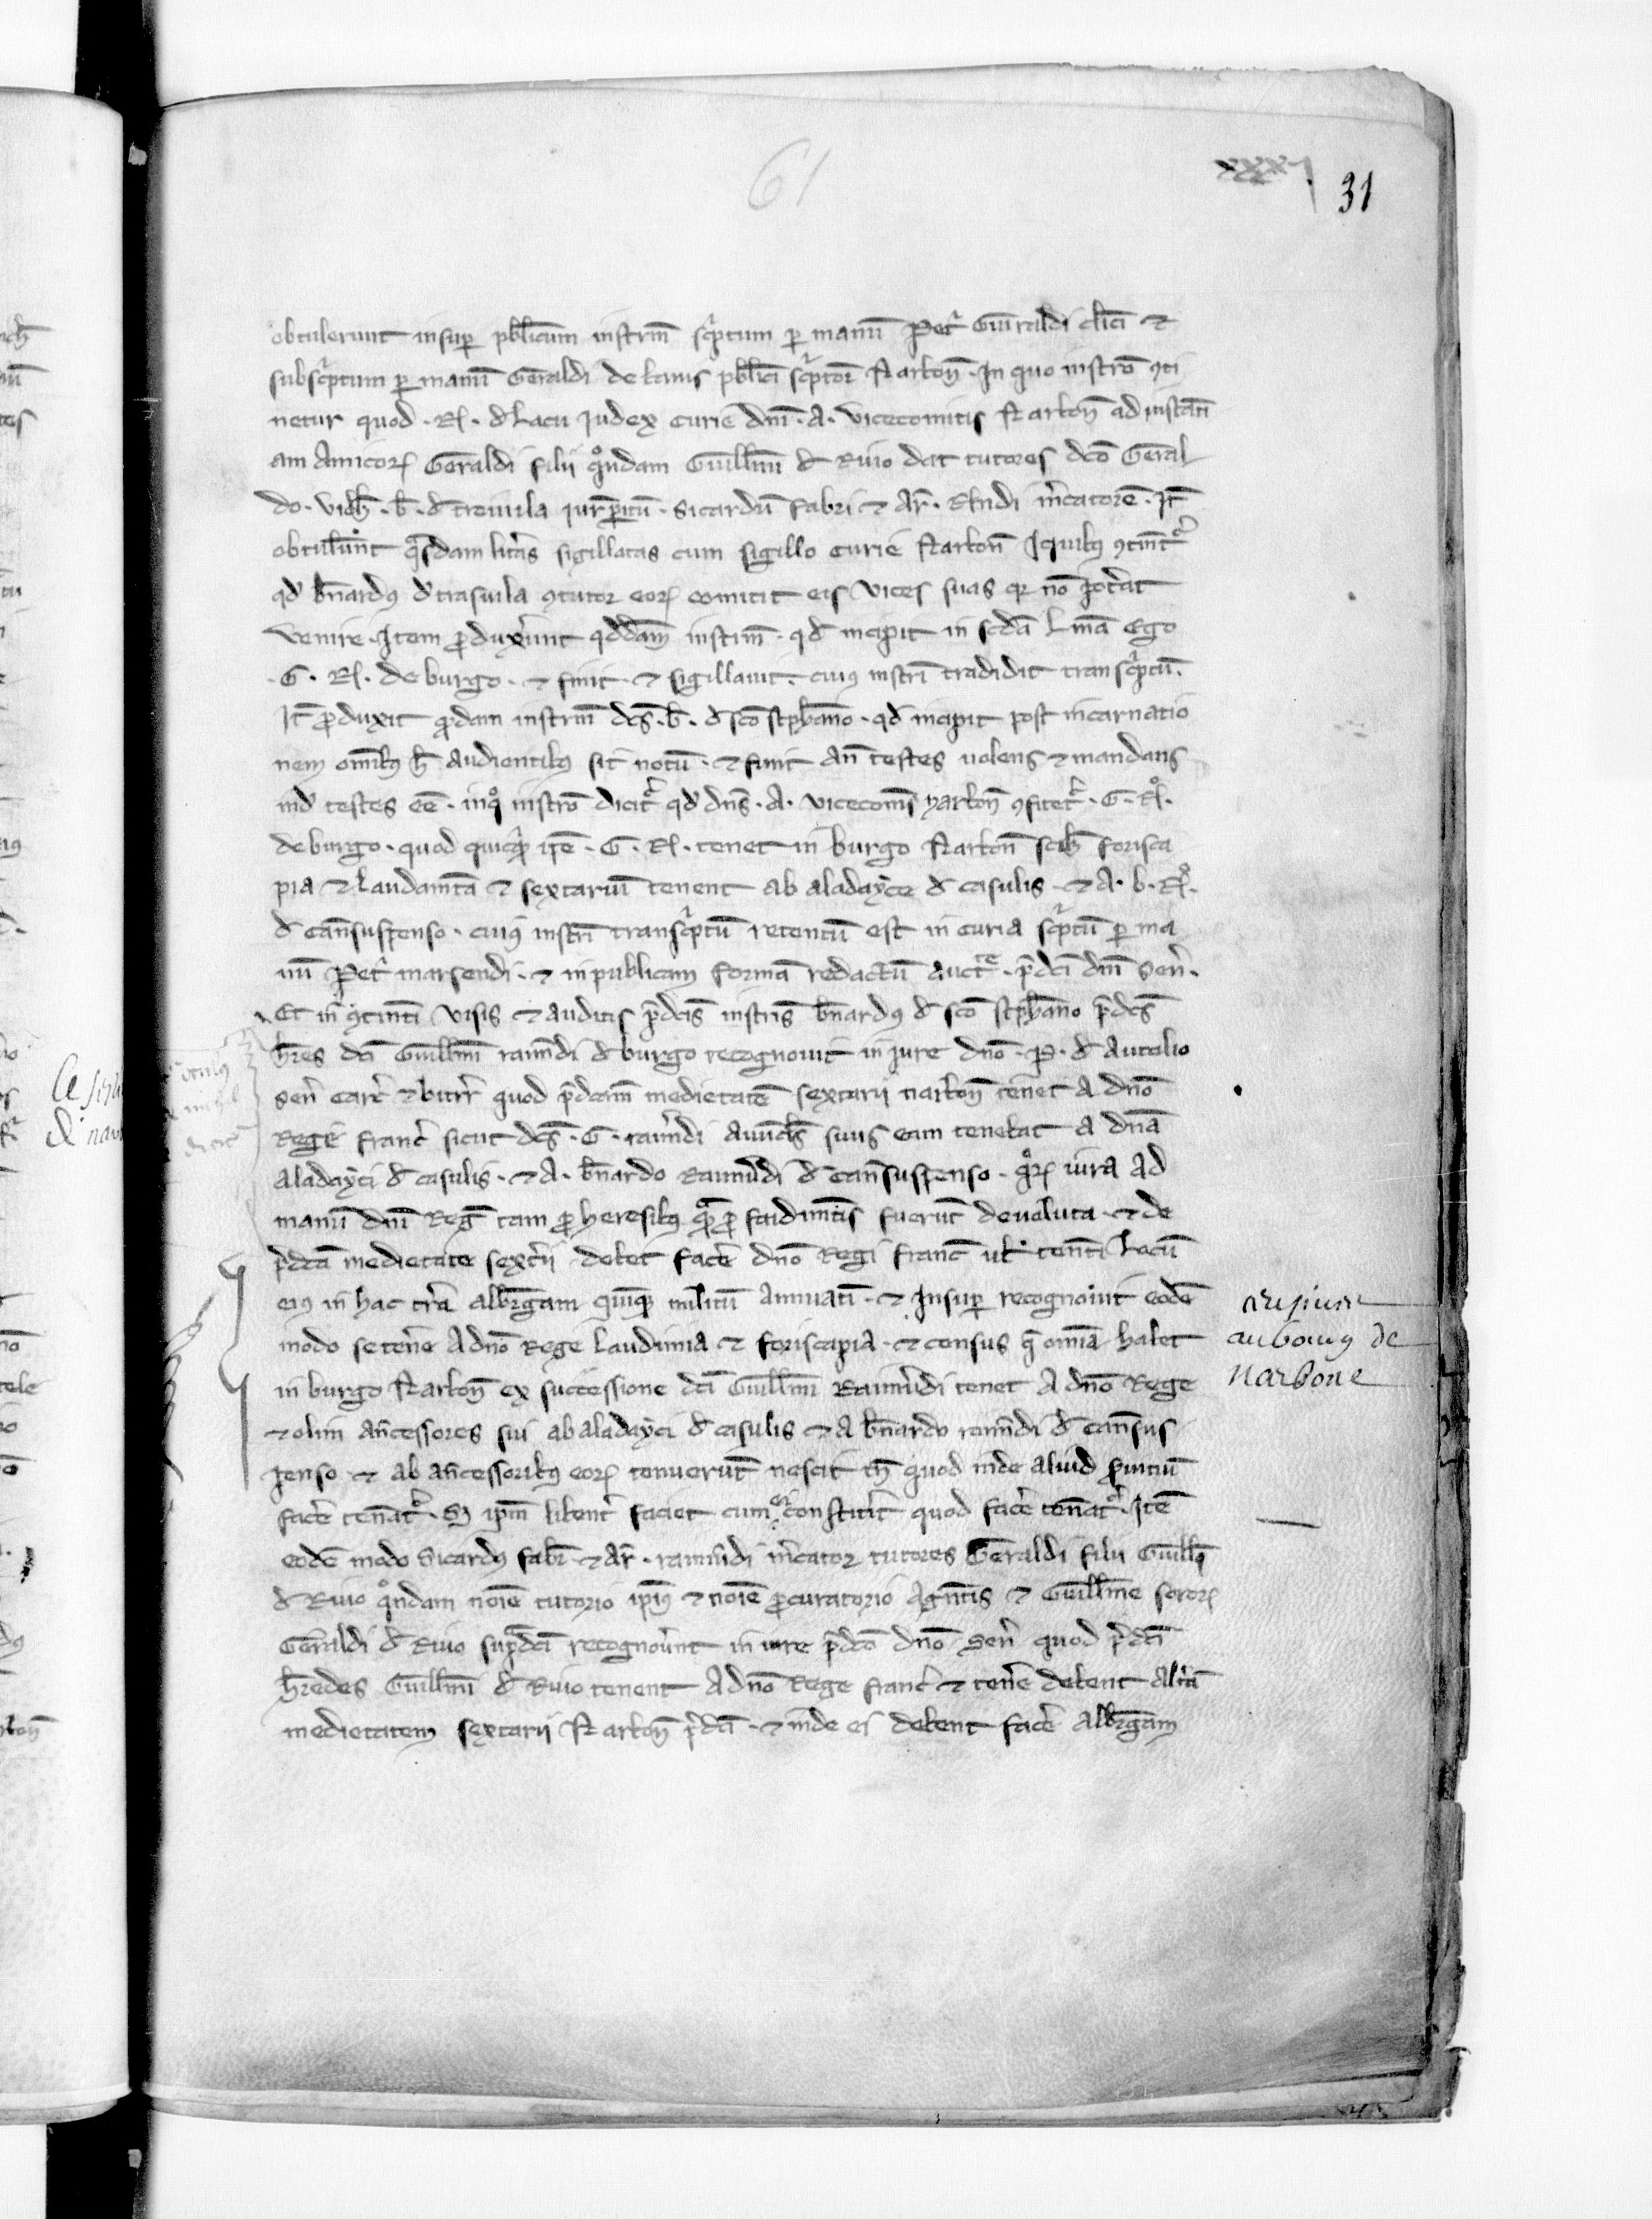 61
xxxj 31
obtulerunt insup pblicum instrm scptum p manu Pet Guiraldi clici ⁊
subscptum p manu Geraldi de lanis pblici scptor Narbon. In quo instro 9ti
netur quod . R. d lacu Judex curie dni . A. vicecomitis Narbon ad instati
am Amicor Geraldi filii qndam Guillmi d Rivio dat tutores dco Geral
do . vidz . b . d trevila jurpitu . Sicardu fabri ⁊ Ar . Rmdi mcatore . It
obtulunt qsdam litas sigillatas cum sigillo curie Narbon Iquib9 9tinet
qd bnard9 d trasvila 9tutor eor comitit eis vices suas qr no potat
venire . Item pduxunt qddam instrm . qd incipit in scda linea Ego
. G . R. de burgo . ⁊ finit . ⁊ sigillavit . cui9 instri tradidit transcptu .
It pduxit qdam instrm dcs . b . d sco stephano . qd incipit post incarnatio
nem omib9 h audientib9 sit notu . ⁊ finit an testes volens ⁊ mandans
ind testes ee . inq instro dicit qd dns . A . vicecoms narbon 9fitet . G . R.
de burgo . quod quicqd ipe . G . R. tenet in burgo Narbon scilz forisca
pia ⁊ laudamta ⁊ sextariu tenent ab aladayce d casulis . ⁊ A . b . R.
d cansuspenso . cui9 instri transcptu retentu est in curia scptu p ma
nu Pet marsendi . ⁊ in publicam forma redactu auctte . pdci dni Sen .
Et in 9tinti visis ⁊ auditis pdcis instris bnard9 d sco stephano pdcs
hres dci Guillmi ramdi d burgo recognovit in jure dno . P . d Autolio
sen carc ⁊ bitr quod pdcam medietate sextarii narbon tenet A dno
Rege franc sicut dcs . G . ramdi avuncls suus eam tenebat A dna
aladayci d casulis . ⁊ A . bnardo Raimudi d cansuspenso . qor jura ad
manu dni Reg tam p heresib9 qm p faidimtis fuerut devoluta . ⁊ de
pdca medietate sextii debet face dno Regi franc ul tenti locu
ei9 in hac tra albgam quiq militu annuati . ⁊ Insup recognovit eode
modo se tene A dno Rege laudimia ⁊ foriscapia . ⁊ census q omia habet
in burgo Narbon ex successione dci Guillmi Raimudi tenet A dno Rege
⁊ olim ancessores sui ab aladayci d casulis ⁊ A bnardo raimdi d cansus
penso ⁊ ab ancessorib9 eor tenuerut nescit tn quod inde aliud svitiu
face tenat . S ipm libent faciet cum ei constitit quod face tenat . Ite
eode modo Sicard9 fabi ⁊ Ar . raimudi mcator tutores Geraldi filii Guillmi
d Rivio qndam noie tutorio ipi9 ⁊ noie pcuratorio Agntis ⁊ Guillme soror
Geraldi d Rivio supdci recognovnt in iure pdco dno Sen quod pdci
hredes Guillmi d Rivio tenent A dno Rege franc ⁊ tene debent alta
medietatem sextarii Narbon pdci . ⁊ inde ei debent face albgam
au bourg de
Narbone